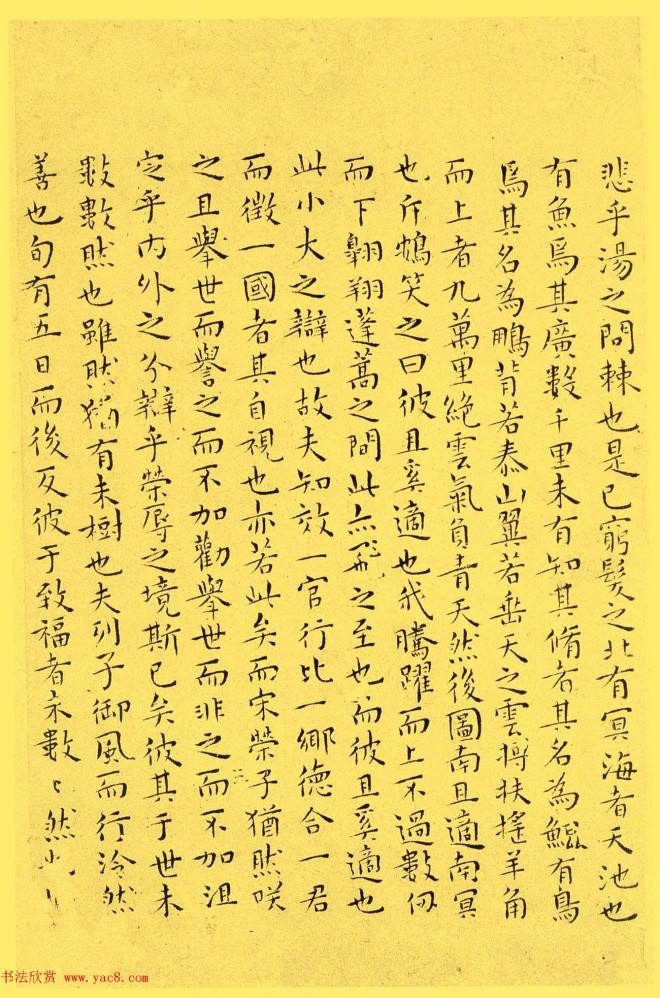 悲乎湯之問棘也是已窮髮之北有冥海者天池也
有魚焉其廣數千里未有知其脩者其名為鯤有鳥
焉其名為鵬背若泰山翼若垂天之雲搏扶搖羊角
而上者九萬里絕雲氣負青天然後圖南且適南冥
也斥鴳笑之曰彼且奚適也我騰躍而上不過數仞
而下翱翔蓬蒿之間此亦飛之至也而彼且奚適也
此小大之辯也故夫知效一官行比一鄉德合一君
而徵一國者其自視也亦若此矣而宋榮子猶然咲
之且舉世而譽之而不加勸舉世而非之而不加沮
定乎內外之分辯乎榮辱之境斯已矣彼其于世未
數數然也雖然猶有未樹也夫列子御風而行泠然
善也旬有五日而後反彼于致福者未數〻然
书法欣赏 www.yac8.com